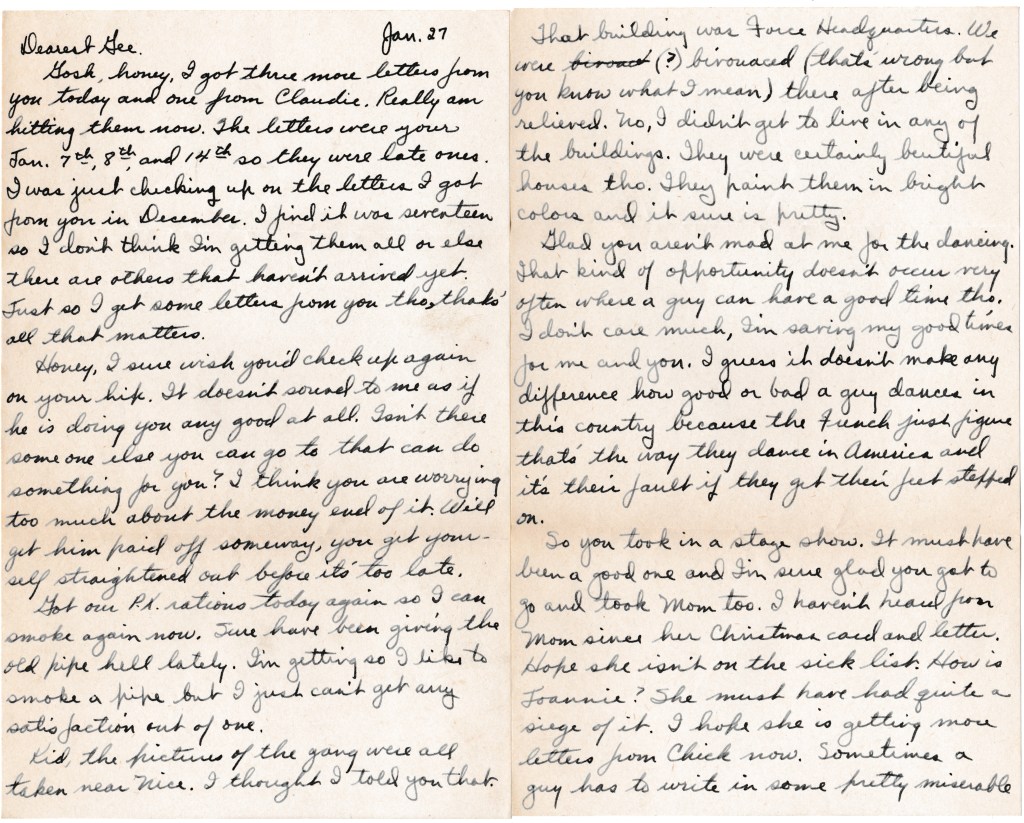 Jan. 27
Dearest Gee.
Gosh, honey, I got three more letters from
you today and one from Claudie. Really am
hitting them now. The letters were your
Jan. 7th, 8th, and 14th so they were late ones.
I was just checking up on the letters I got
from you in December. I find it was seventeen
so I don't think I'm getting them all or else
there are others that haven't arrived yet.
Just so I get some letters from you tho, thats'
all that matters.
Honey, I sure wish you'd check up again
on your hip. It doesn't sound to me as if
he is doing you any good at all. Isn't there
someone else you can go to that can do
something for you? I think you are worrying
too much about the money end of it. We'll
get him paid off someway, you get your-
self straightened out before it's too late.
Got our P.X. rations today again so I can
smoke again now. Sure have been giving the
old pipe hell lately. I'm getting so I like to
smoke a pipe but I just can't get any
satisfaction out of one.
Kid, the pictures of the gang were all
taken near Nice. I thought I told you that.
That building was Force Headquarters. We
were bivouac (?) bivouaced (thats wrong but
you know what I mean) there after being
relieved. No, I didn't get to live in any of
the buildings. They were certainly beutiful
houses tho. They paint them in bright
colors and it sure is pretty.
Glad you aren't mad at me for the dancing.
That kind of opportunity doesn't occur very
often where a guy can have a good time tho.
I don't care much, I'm saving my good times
for me and you. I guess it doesn't make any
difference how good or bad a guy dances in
this country because the French just figure
that's the way they dance in America and
it's their fault if they get their feet stepped
on.
So you took in a stage show. It must have
been a good one and I'm sure glad you got to
go and took Mom too. I haven't heard from
Mom since her Christmas card and letter.
Hope she isn't on the sick list. How is
Joannie? She must have had quite a
siege of it. I hope she is getting more
letters from Chick now. Sometimes a
guy has to write in some pretty miserable